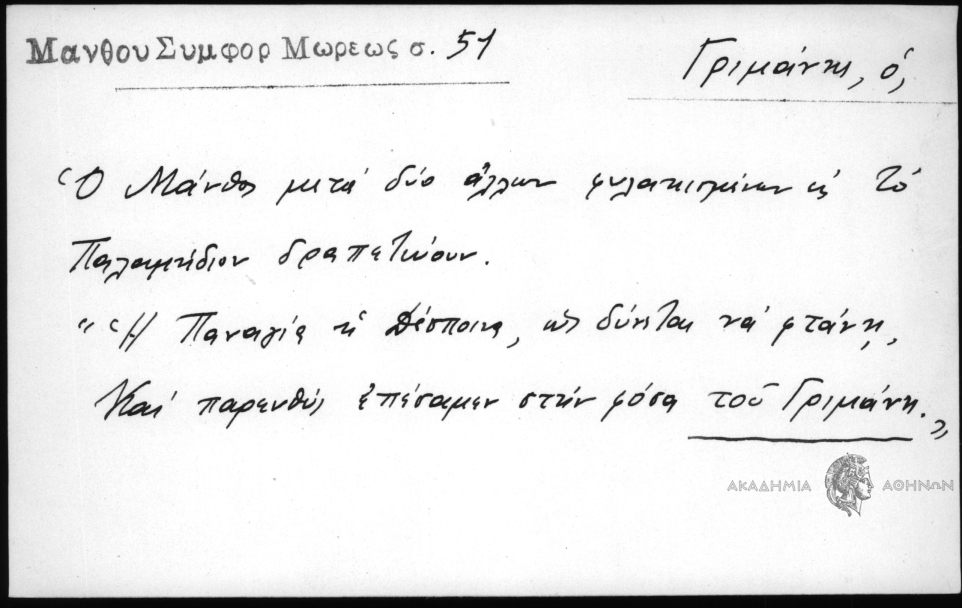 Μανθου Συμφορ Μωρεως σ. 51
Γριμάνης, ὁ,
Ὁ Μάνθος μετά δύο ἄλλων φυλακισμένων εἰς τό
Παλαμήδιον δραπετεύουν.
"Ἡ Παναγία ἡ Δέσποινα, ὡς δύνεται νά φτάνῃ,
Καί παρευθύς ἐπέσαμεν στήν φόσα τοῦ Γριμάνη.„
ΑΚΑΔΗΜΙΑ ΑΘΗΝΩΝ